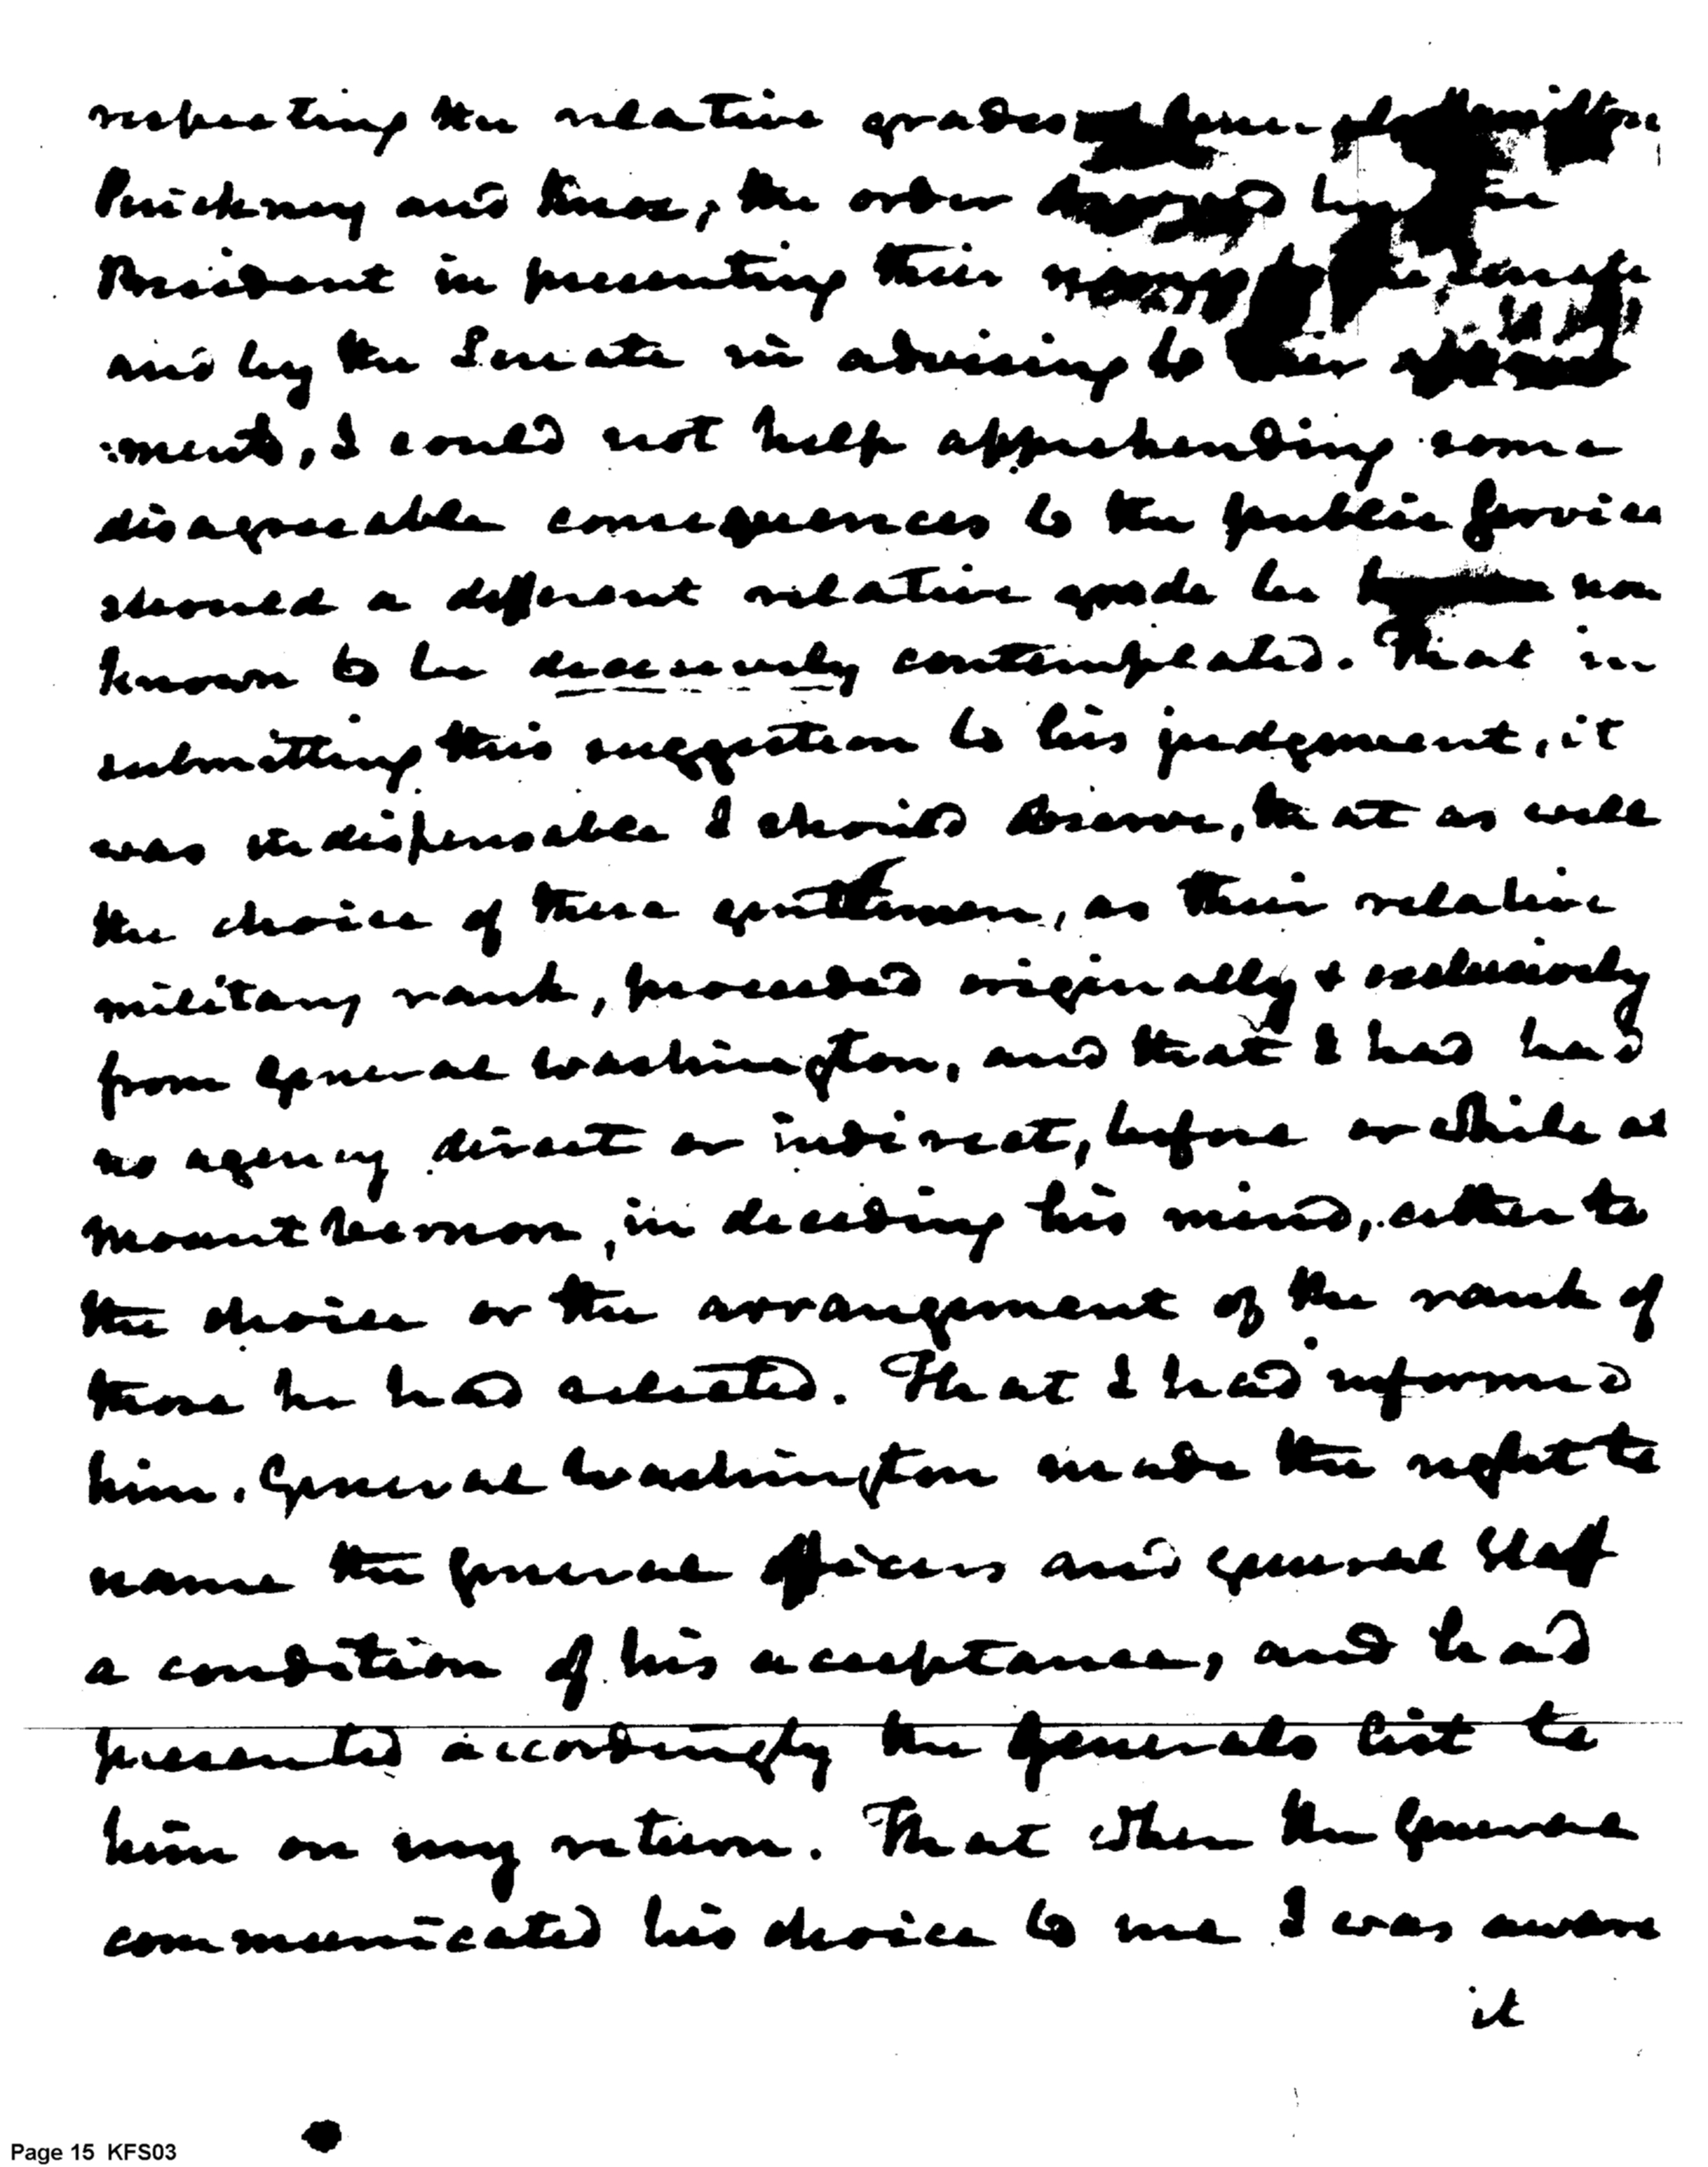 respecting the relative grades of Genls Hamilton
Pinckney and Knox, the order by the
President in presenting their names to the Senate
and by the Senate in advising to their appoint
:ments, I could not help apprehending some
disagreeable consequences to the public service
should a different relative grade be now
known to be decisively contemplated. That in
submitting this suggestion to his judgement, it
was indispensable I should observe, that as well
the choice of these gentlemen, as their relative
military rank, proceeded originally & exclusively
from General Washington, and that I had had
no agency direct or indirect, before or while at
Mount Vernon, in deciding his mind, either to
the choice or the arrangement of the rank of
those he had selected. That I had informed
him, General Washington made the right to
name the general officers and general staff
a condition of his acceptance, and had
presented accordingly the Generals list to
him on my return. That when the General
communicated his choice to me I was aware
it
Page 15 KFS03